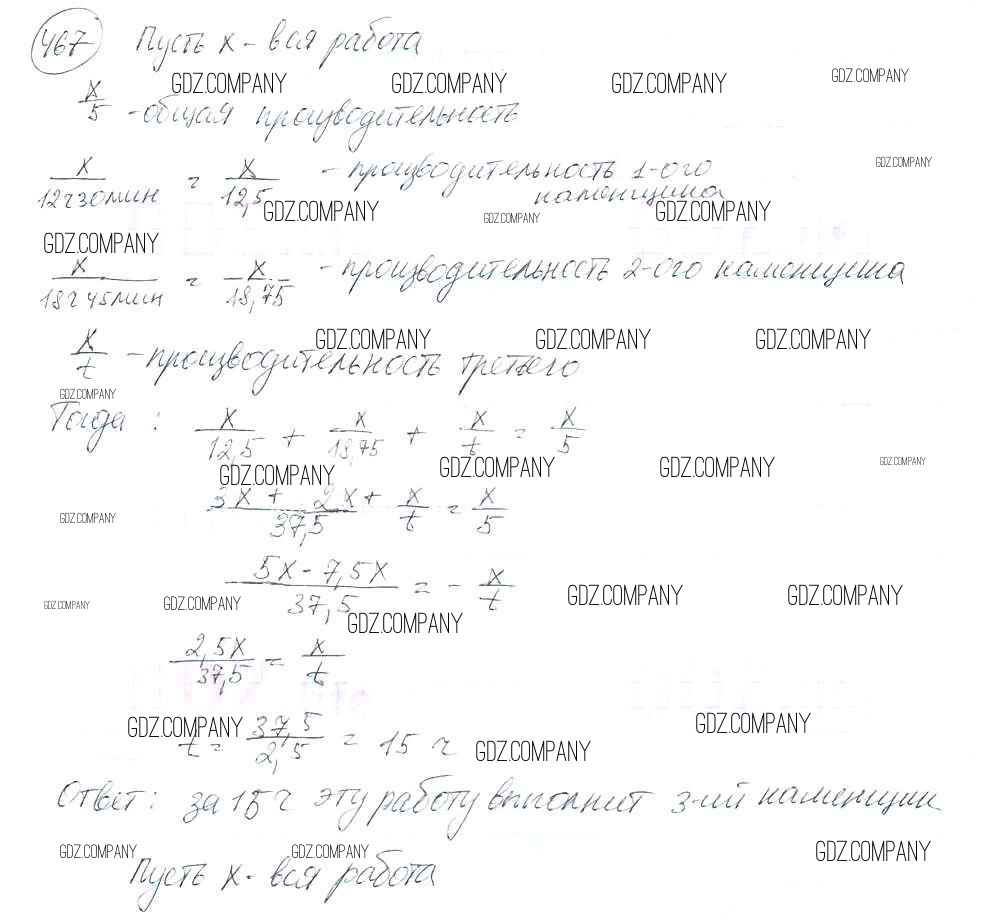 467 Пусть x - вся работа
GDZ.COMPANY GDZ.COMPANY GDZ.COMPANY GDZ.COMPANY
x/5 - общая производительность
GDZ.COMPANY
x/12ч30мин = x/12,5 - производительность 1-ого
каменщика
GDZ.COMPANY GDZ.COMPANY GDZ.COMPANY
GDZ.COMPANY
x/18ч45мин = x/18,75 - производительность 2-ого каменщика
GDZ.COMPANY GDZ.COMPANY GDZ.COMPANY
x/t - производительность третьего
GDZ.COMPANY
Тогда : x/12,5 + x/18,75 + x/t = x/5
GDZ.COMPANY GDZ.COMPANY GDZ.COMPANY GDZ.COMPANY
3x + 2x/37,5 + x/t = x/5
GDZ.COMPANY
5x - 7,5x/37,5 = - x/t
GDZ.COMPANY GDZ.COMPANY GDZ.COMPANY GDZ.COMPANY
GDZ.COMPANY
2,5x/37,5 = x/t
GDZ.COMPANY GDZ.COMPANY
t = 37,5/2,5 = 15 ч
GDZ.COMPANY
Ответ: за 15 ч эту работу выполнит 3-ий каменщик
GDZ.COMPANY GDZ.COMPANY GDZ.COMPANY
Пусть x - вся работа